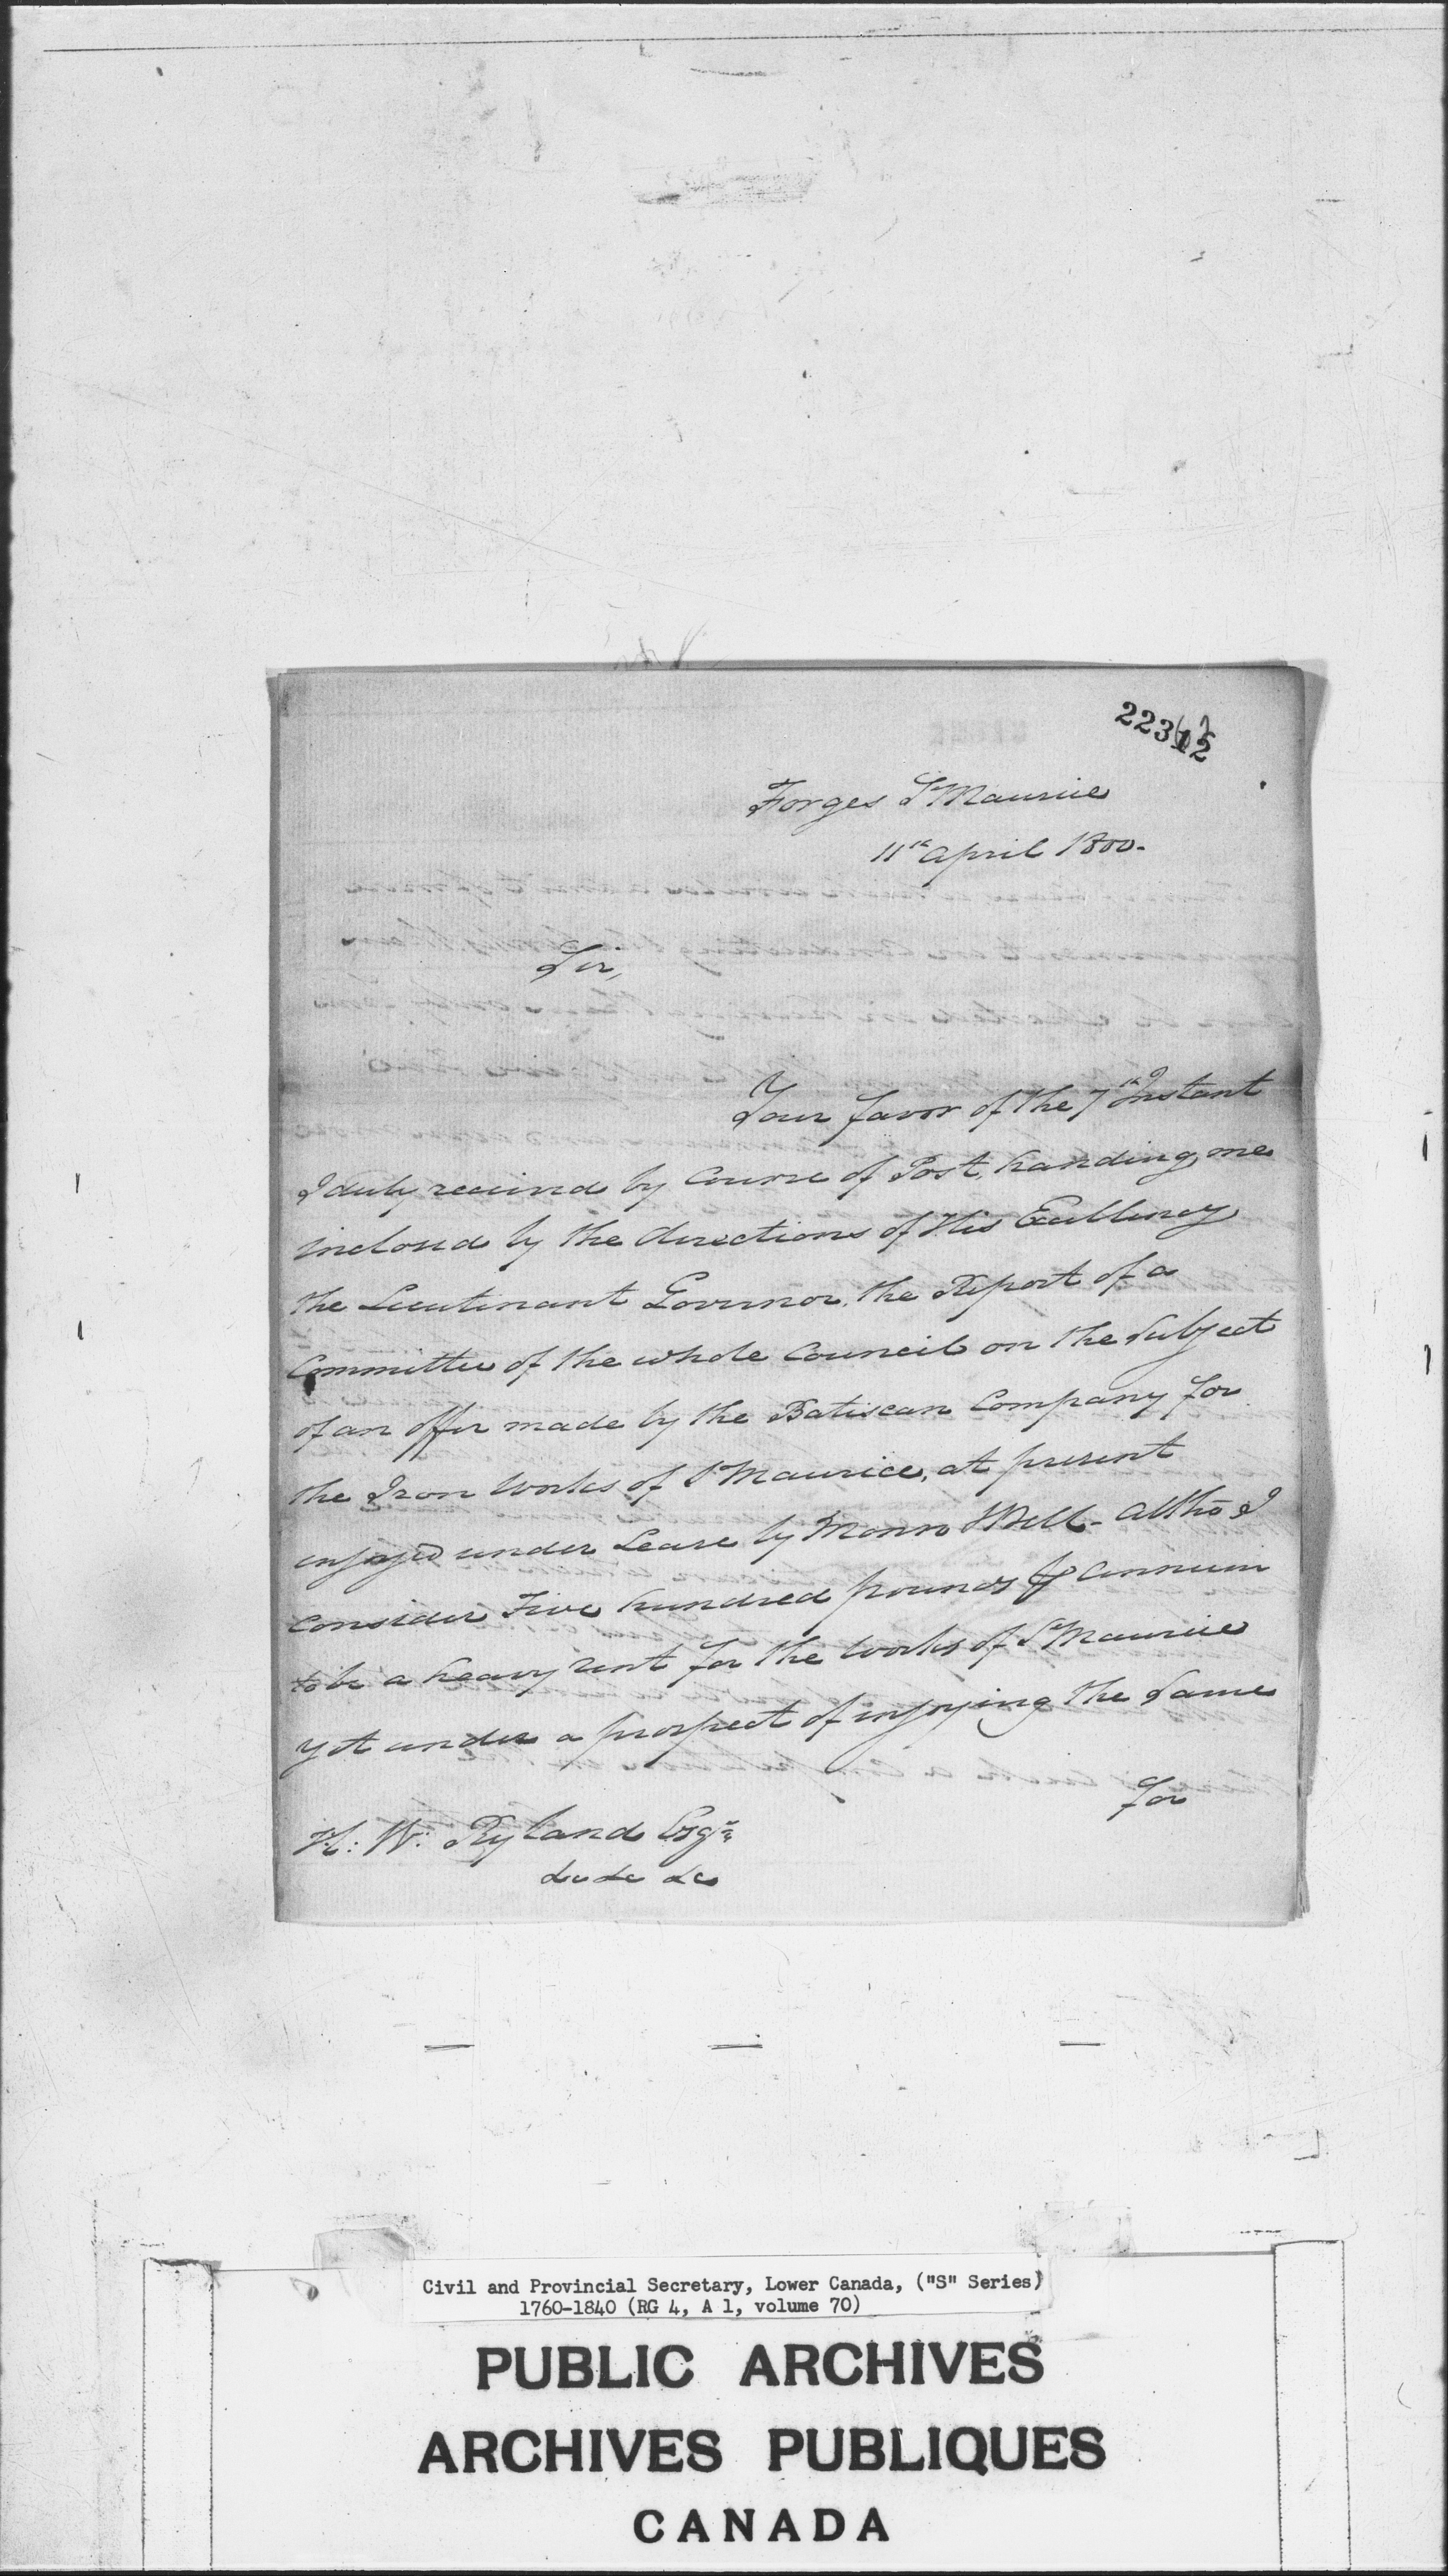 Forges St Maurice
11th April 1800.
Sir,
Your favor of the 7th Instant
I duly received by Course of Post, handing me
inclosed by the directions of His Excellency
the Lieutenant Governor, the Report of a
Committee of the whole Council on the Subject
of an offer made by the Batiscan Company for
the Iron Works of St Maurice, at present
enjoyed under Lease by Monro & Bell - Altho I
consider Five hundred pounds ⅌ Annum
to be a heavy rent for the Works of St Maurice
yet under a prospect of enjoying the Same
for
H: W: Ryland Esqr.
&c &c &c
Civil and Provincial Secretary, Lower Canada, ("S" Series)
1760-1840 (RG 4, A 1, volume 70)
PUBLIC ARCHIVES
ARCHIVES PUBLIQUES
CANADA